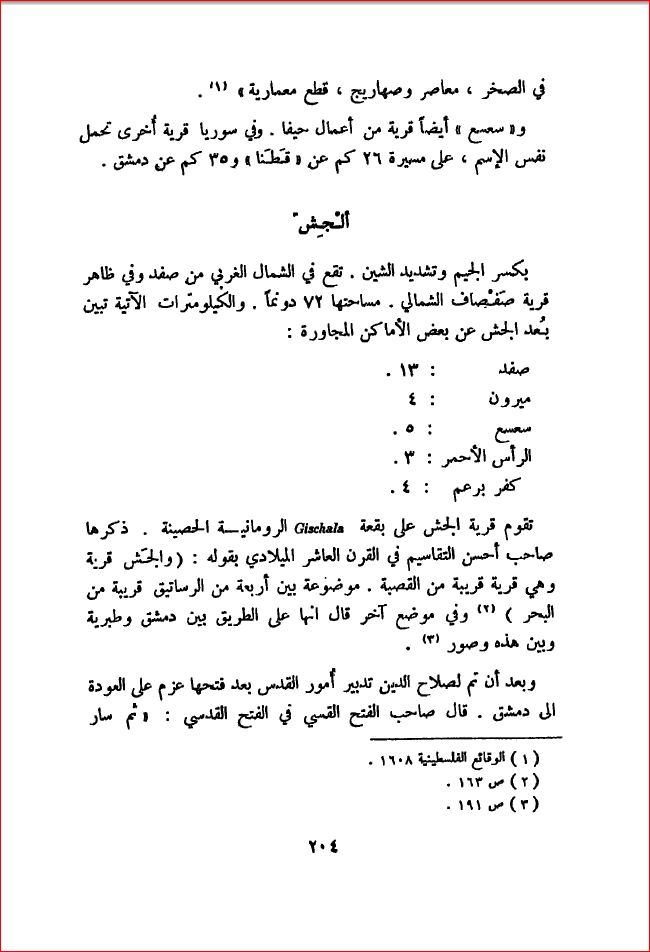 في الصخر ، معاصر وصهاريج ، قطع معمارية » (١) .
و« سعسع » أيضاً قرية من أعمال حيفا . وفي سوريا قرية أُخرى تحمل
نفس الإسم ، على مسيرة ٢٦ كم عن « قَطَنا » و٣٥ كم عن دمشق .
ألْجِشّ
بكسر الجيم وتشديد الشين . تقع في الشمال الغربي من صفد وفي ظاهر
قرية صَفْصاف الشمالي . مساحتها ٧٢ دونماً . والكيلومترات الآتية تبين
بُعد الجش عن بعض الأماكن المجاورة :
صفد : ١٣ .
ميرون : ٤
سعسع : ٥ .
الرأس الأحمر : ٣ .
كفر برعم : ٤ .
تقوم قرية الجش على بقعة Gischala الرومانيـة الحصينة . ذكرها
صاحب أحسن التقاسيم في القرن العاشر الميلادي بقوله : ( والجَش قرية
وهي قرية قريبة من القصبة . موضوعة بين أربعة من الرساتيق قريبة من
البحر ) (٢) وفي موضع آخر قال انها على الطريق بين دمشق وطبرية
وبين هذه وصور (٣) .
وبعد أن تم لصلاح الدين تدبير أُمور القدس بعد فتحها عزم على العودة
الى دمشق . قال صاحب الفتح القسي في الفتح القدسي : « ثم سار
( ١ ) الوقائع الفلسطينية ١٦٠٨ .
( ٢ ) ص ١٦٣ .
( ٣ ) ص ١٩١ .
٢٠٤